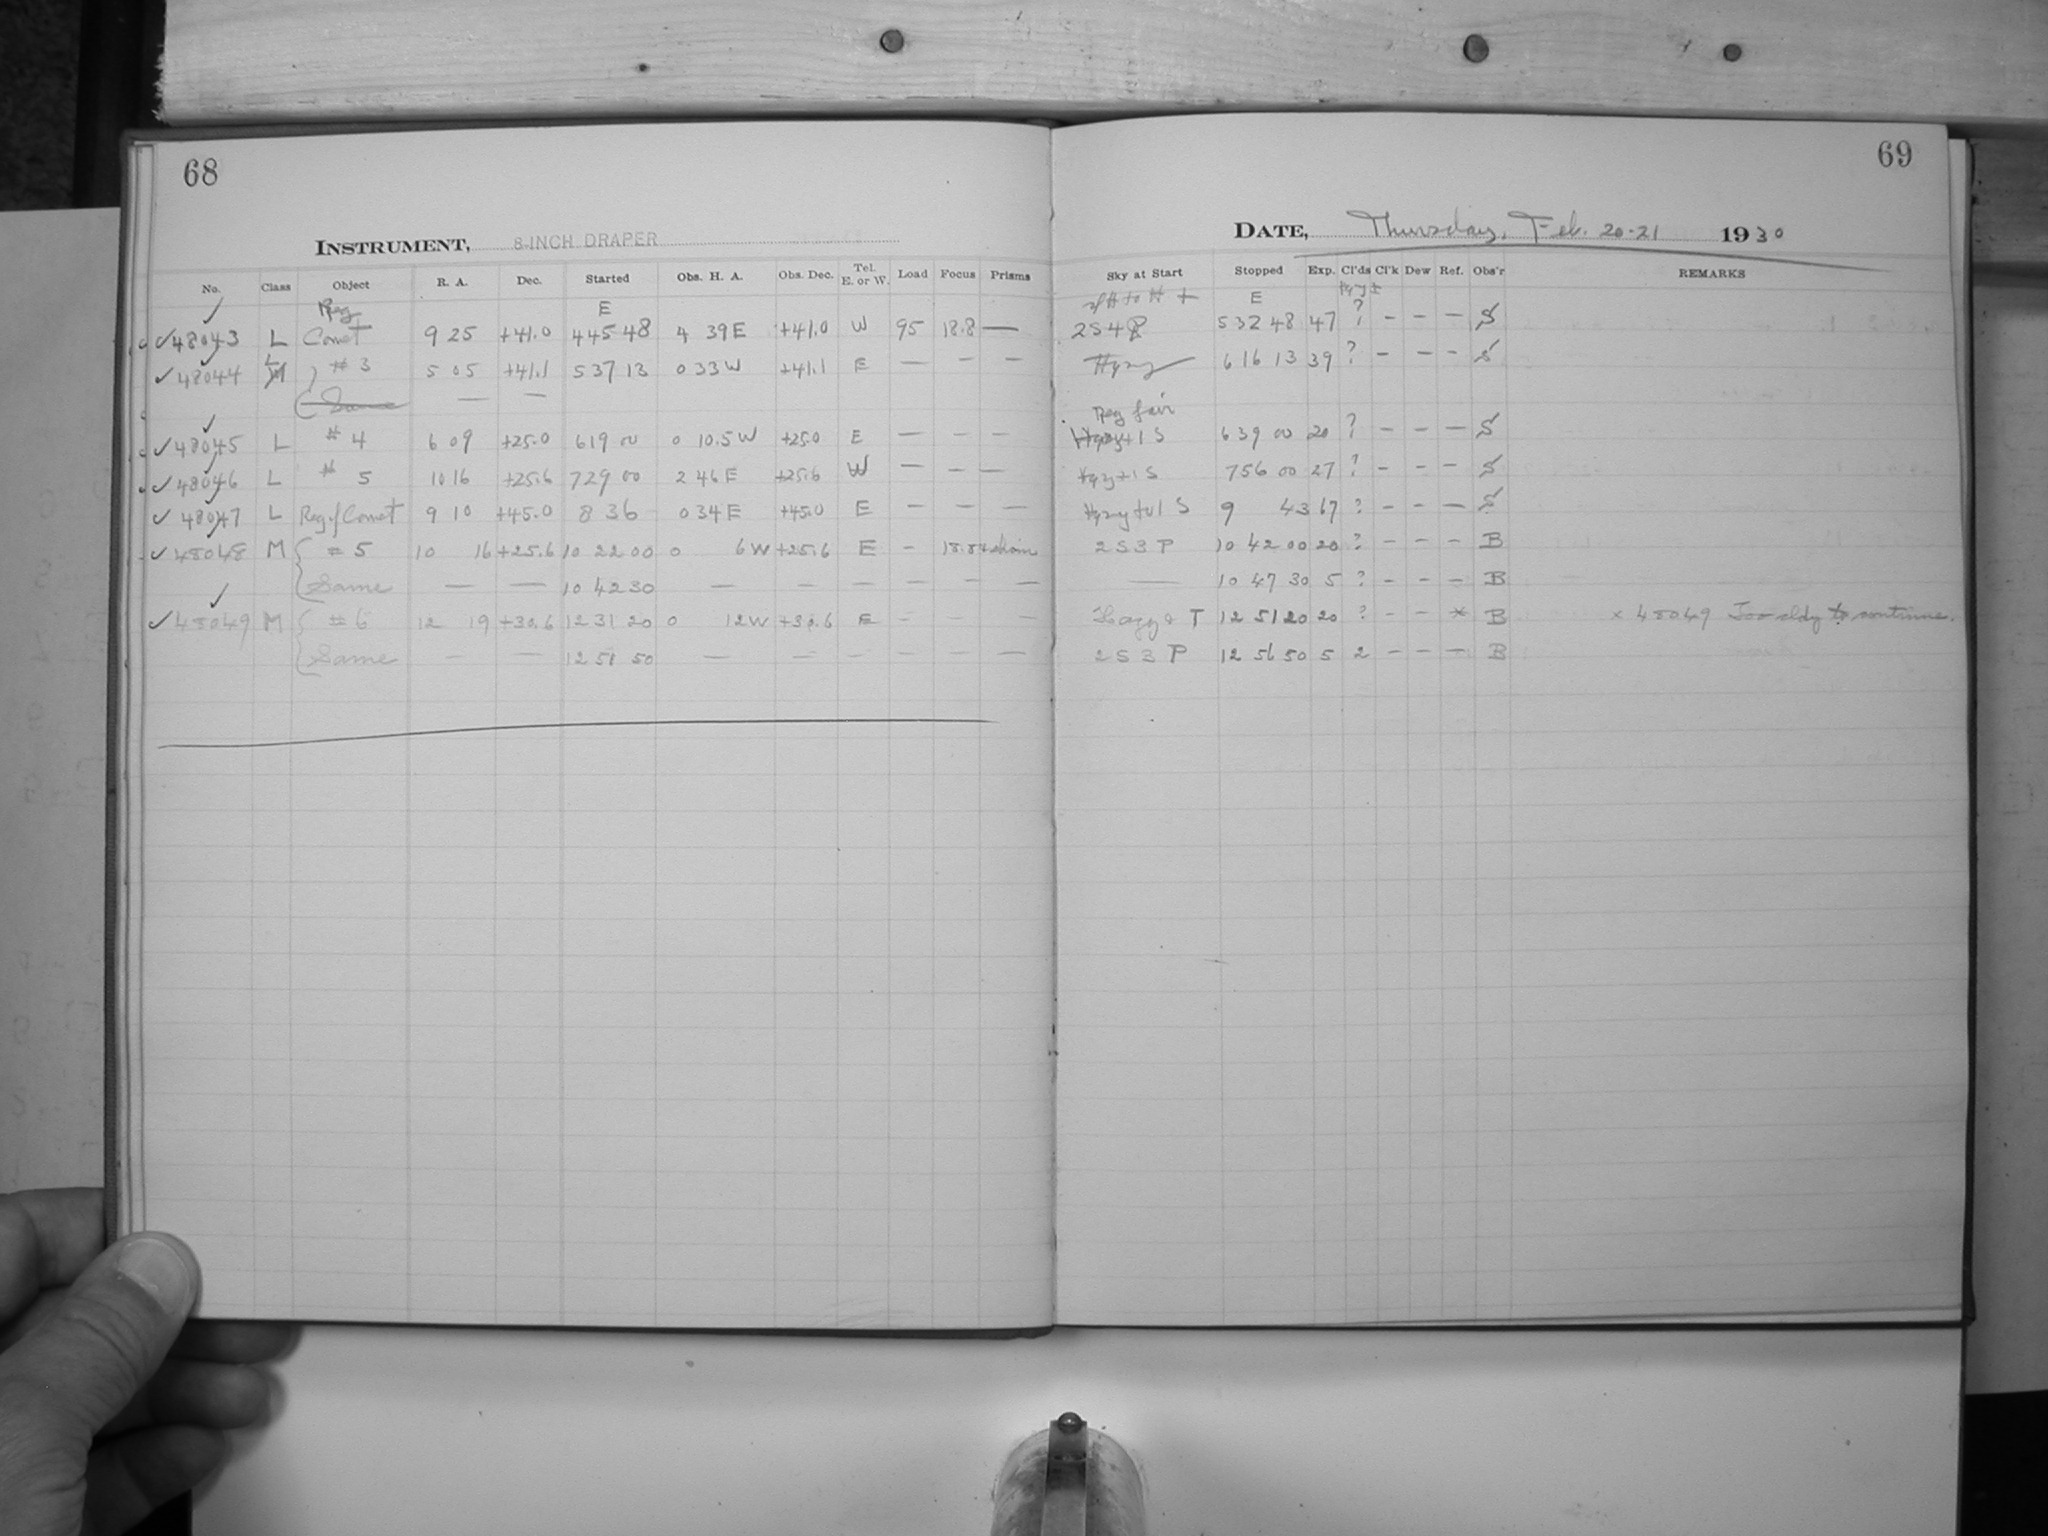 68
INSTRUMENT, 8-INCH DRAPER
No. Class Object R. A. Dec. Started Obs. H. A. Obs. Dec. Tel. E. or W. Load Focus Prisms
Reg E
✓48043 L Comet 9 25 +41.0 4 45 48 4 39 E +41.0 W 95 18.8 —
L
✓48044 M # 3 5 05 +41.1 5 37 13 0 33 W +41.1 E — — —
Same — —
✓48045 L # 4 6 09 +25.0 6 19 00 0 10.5 W +25.0 E — — —
✓48046 L # 5 10 16 +25.6 7 29 00 2 46 E +25.6 W — — —
✓48047 L Reg of Comet 9 10 +45.0 8 36 0 34 E +45.0 E — — —
✓48048 M # 5 10 16 +25.6 10 22 00 0 6 W +25.6 E -
Same — — 10 42 30 — — — — — —
✓48049 M # 6 12 19 +30.6 12 31 20 0 12 W +30.6 E — — —
Same — — 12 51 50 — — — — — —
69
DATE, Thursday, Feb. 20-21 1930
Sky at Start Stopped Exp. Cl'ds Cl'k Dew Ref. Obs'r REMARKS
E
2 S 4 P 5 32 48 47 ? - - - S
Hazy 6 16 13 39 ? - - - S
Reg fair
Hazy + 1 S 6 39 00 20 ? - - - S
Hazy + 1 S 7 56 00 27 ? - - - S
Hazy to 1 S 9 43 67 ? - - - S
2 S 3 P 10 42 00 20 ? - - - B
— 10 47 30 5 ? - - - B
Hazy & T 12 51 20 20 ? - - × B × 48049 Too cldy to continue.
2 S 3 P 12 56 50 5 2 - - - B